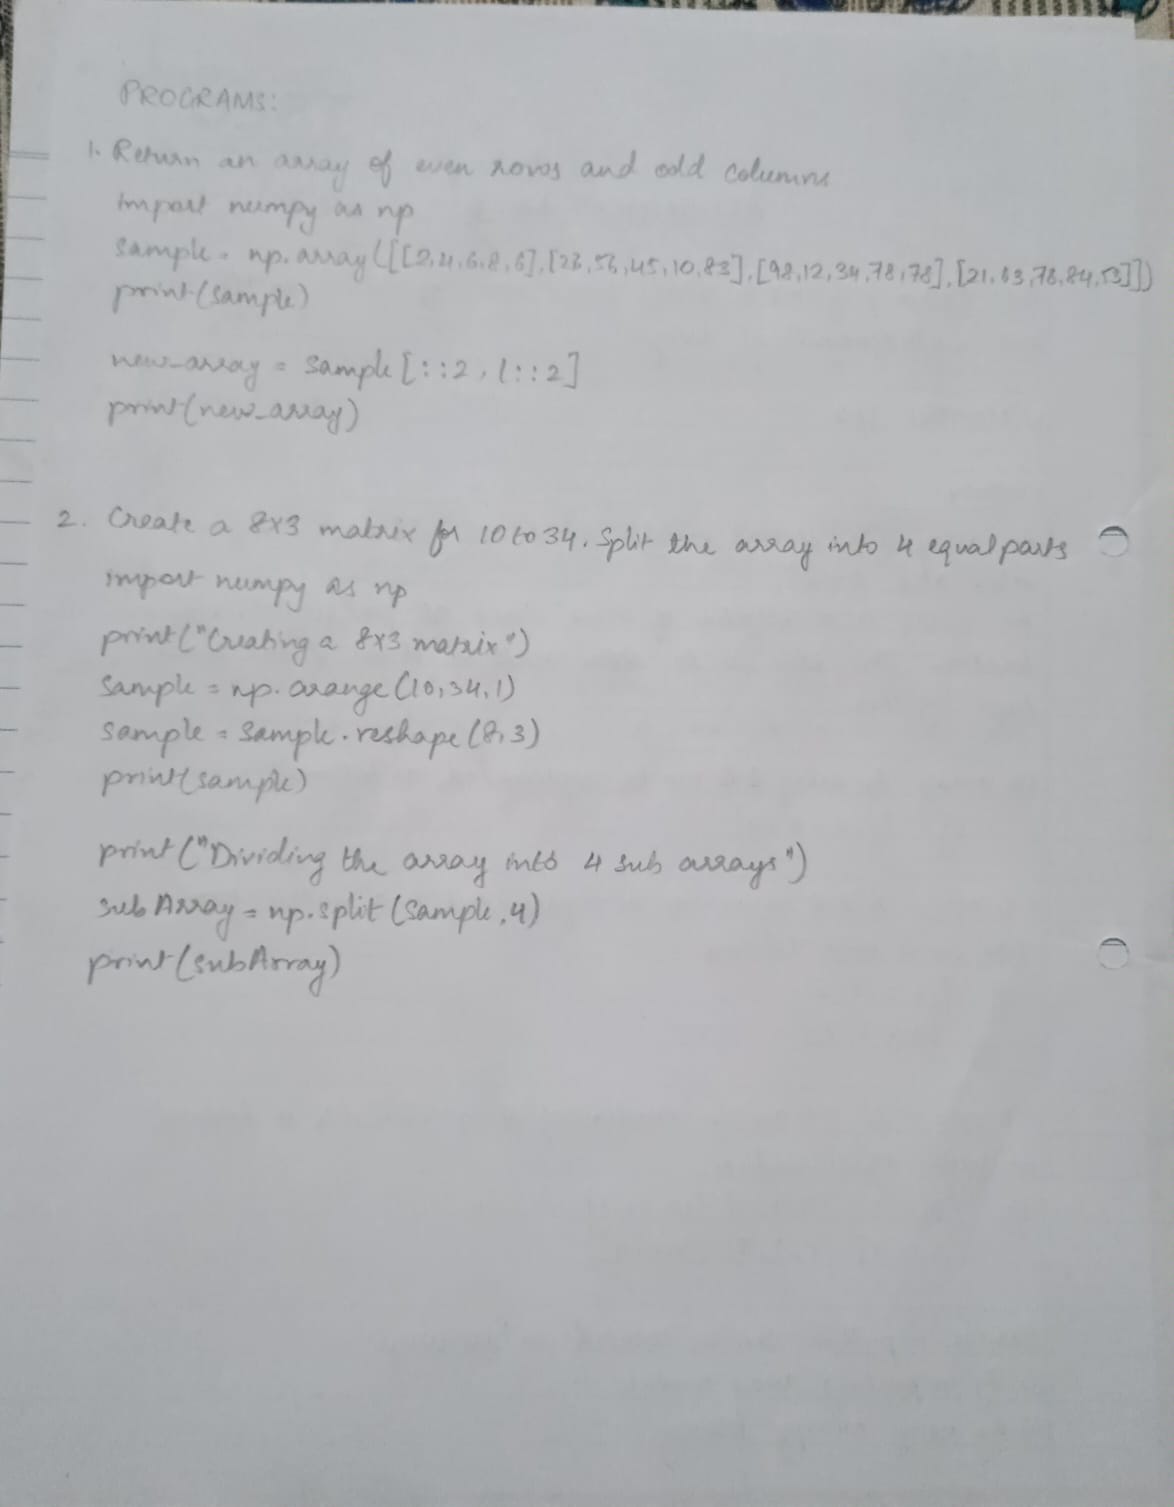 PROGRAMS:
1. Return an array of even rows and odd columns
import numpy as np
sample = np.array([[2,4,6,8,6],[23,56,45,10,83],[98,12,34,78,78],[21,63,78,84,53]])
print(sample)
new_array = sample[::2,1::2]
print(new_array)
2. Create a 8x3 matrix for 10 to 34. Split the array into 4 equal parts
import numpy as np
print("Creating a 8x3 matrix")
Sample = np.arange(10,34,1)
sample = sample.reshape(8,3)
print(sample)
print("Dividing the array into 4 sub arrays")
subArray = np.split(sample,4)
print(subArray)